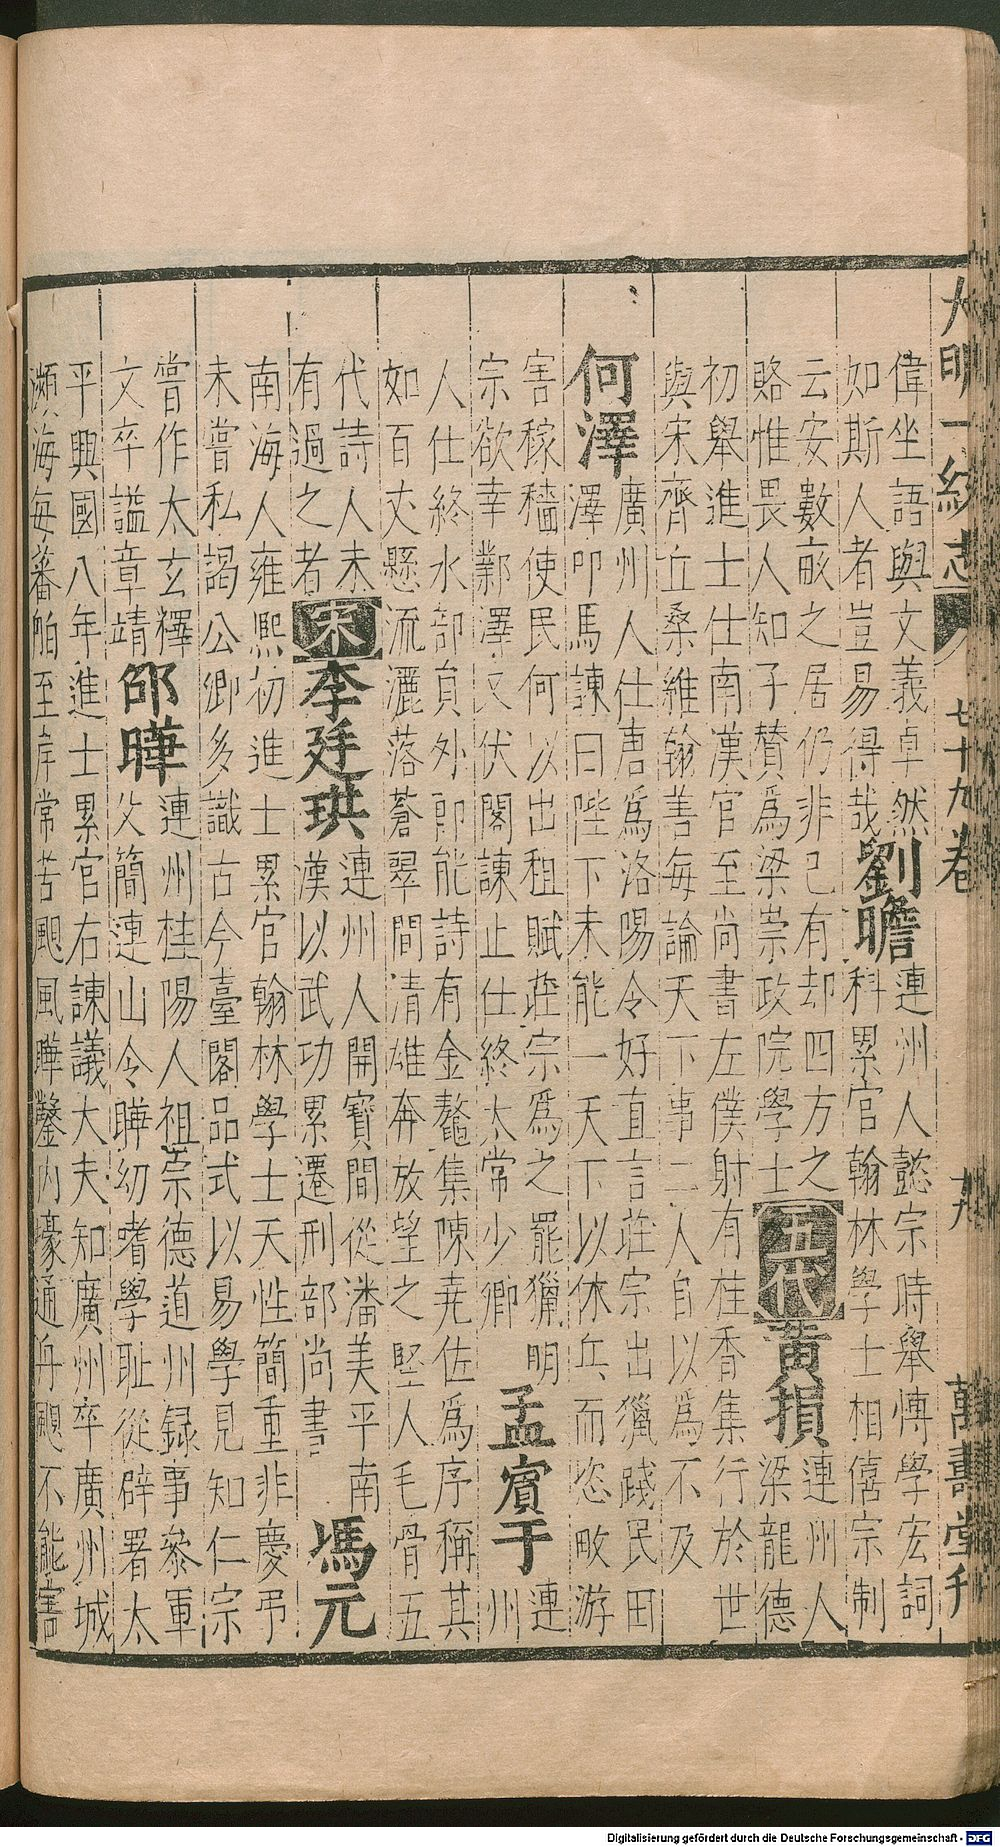 大明一統志 七十九卷 十九 萬壽堂刊
偉坐語與文義卓然
如斯人者豈易得哉
劉瞻
連州人懿宗時舉博學宏詞
科累官翰林學士相僖宗制
云安數畝之居仍非己有却四方之
賂惟畏人知子贊爲梁崇政院學士
五代
黃損
連州人
梁龍德
初舉進士仕南漢官至尚書左僕射有桂香集行於世
與宋齊丘桑維翰善每論天下事二人自以爲不及
何澤
廣州人仕唐爲洛陽令好直言莊宗出獵踐民田
澤叩馬諫曰陛下未能一天下以休兵而恣畋游
害稼穡使民何以出租賦莊宗爲之罷獵明
宗欲幸鄴澤又伏閣諫止仕終太常少卿
孟賓于
連
州
人仕終水部員外郎能詩有金鰲集陳堯佐爲序稱其
如百丈懸流灑落蒼翠間清雄奔放望之堅人毛骨五
代詩人未
有過之者
宋
李廷珙
連州人開寶間從潘美平南
漢以武功累遷刑部尚書
馮元
南海人雍熙初進士累官翰林學士天性簡重非慶弔
未嘗私謁公卿多識古今臺閣品式以易學見知仁宗
嘗作太玄釋
文卒謚章靖
邵曄
連州桂陽人祖崇德道州録事參軍
父簡連山令曄幼嗜學耻從辟署太
平興國八年進士累官右諫議大夫知廣州卒廣州城
瀕海每蕃舶至岸常苦颶風曄鑿内壕通舟颶不能害
Digitalisierung gefördert durch die Deutsche Forschungsgemeinschaft - DFG